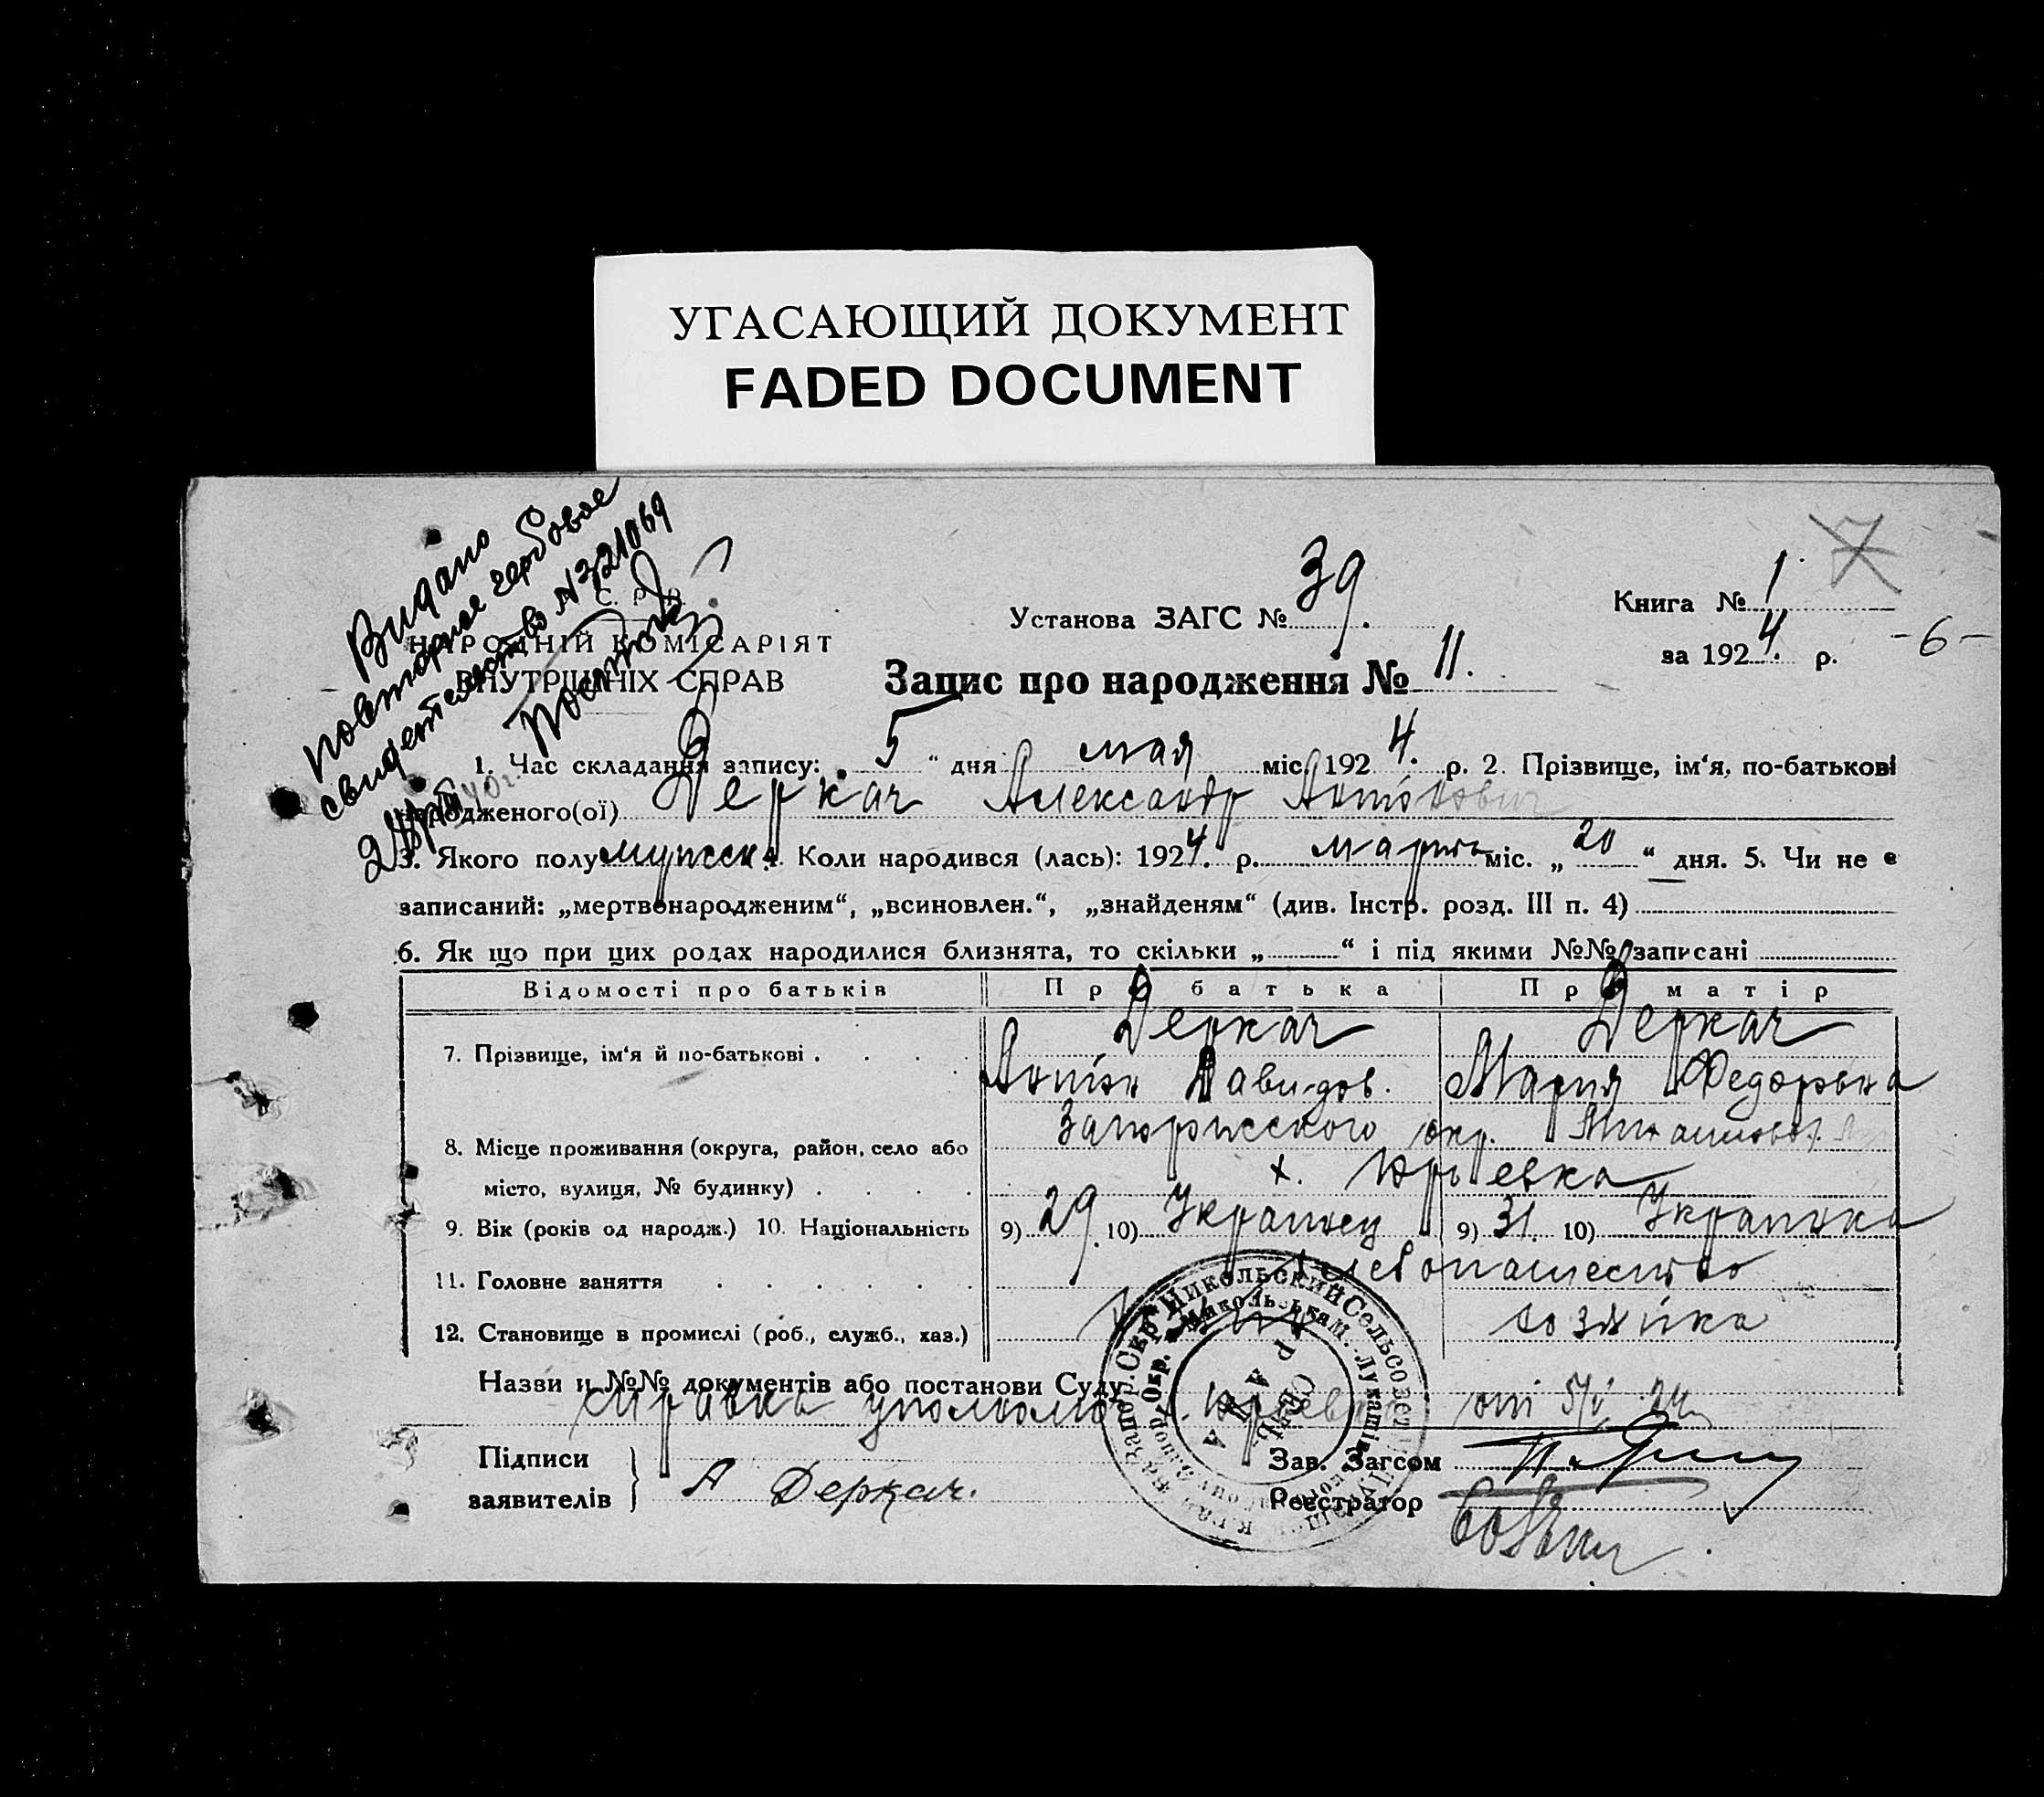 УГАСАЮЩИЙ ДОКУМЕНТ
FADED DOCUMENT
Видано
повторное гербовое
свидетельство № 321069
У. С. Р. Р.
НАРОДНІЙ КОМІСАРІЯТ
ВНУТРІШНІХ СПРАВ
Установа ЗАГС № 39.
Книга № 1
за 1924. р.
-6-
Запис про народження № 11.
1. Час складання запису: „5“ дня мая міс. 1924. р. 2. Прізвище, ім‘я, по-батькові
народженого(ої) Деркач Александр Антонович
3. Якого полу мужск. 4. Коли народився (лась): 1924. р. марта міс. „20“ дня. 5. Чи не є
записаний: „мертвонародженим“, „всиновлен.“, „знайденям“ (див. Інстр. розд. III п. 4)
6. Як що при цих родах народилися близнята, то скільки „ “ і під якими №№ записані
Відомості про батьків Про батька Про матір
7. Прізвище, ім‘я й по-батькові . Деркач Деркач
Антон Давидов. Мария Федоровна
8. Місце проживання (округа, район, село або Запорижского окр.
місто, вулиця, № будинку) . х. Юрьевка
9. Вік (років од народж.) 10. Національність 9) 29. 10) Украинец 9) 31. 10) Украинка
11. Головне заняття хлебопашество
12. Становище в промислі (роб., служб., хаз.) хозяйка
Назви и №№ документів або постанови Суду
справка от 5/V 24
Підписи
заявителів
А Деркач.
Зав. Загсом
Реєстратор
Никольский Сельсовет